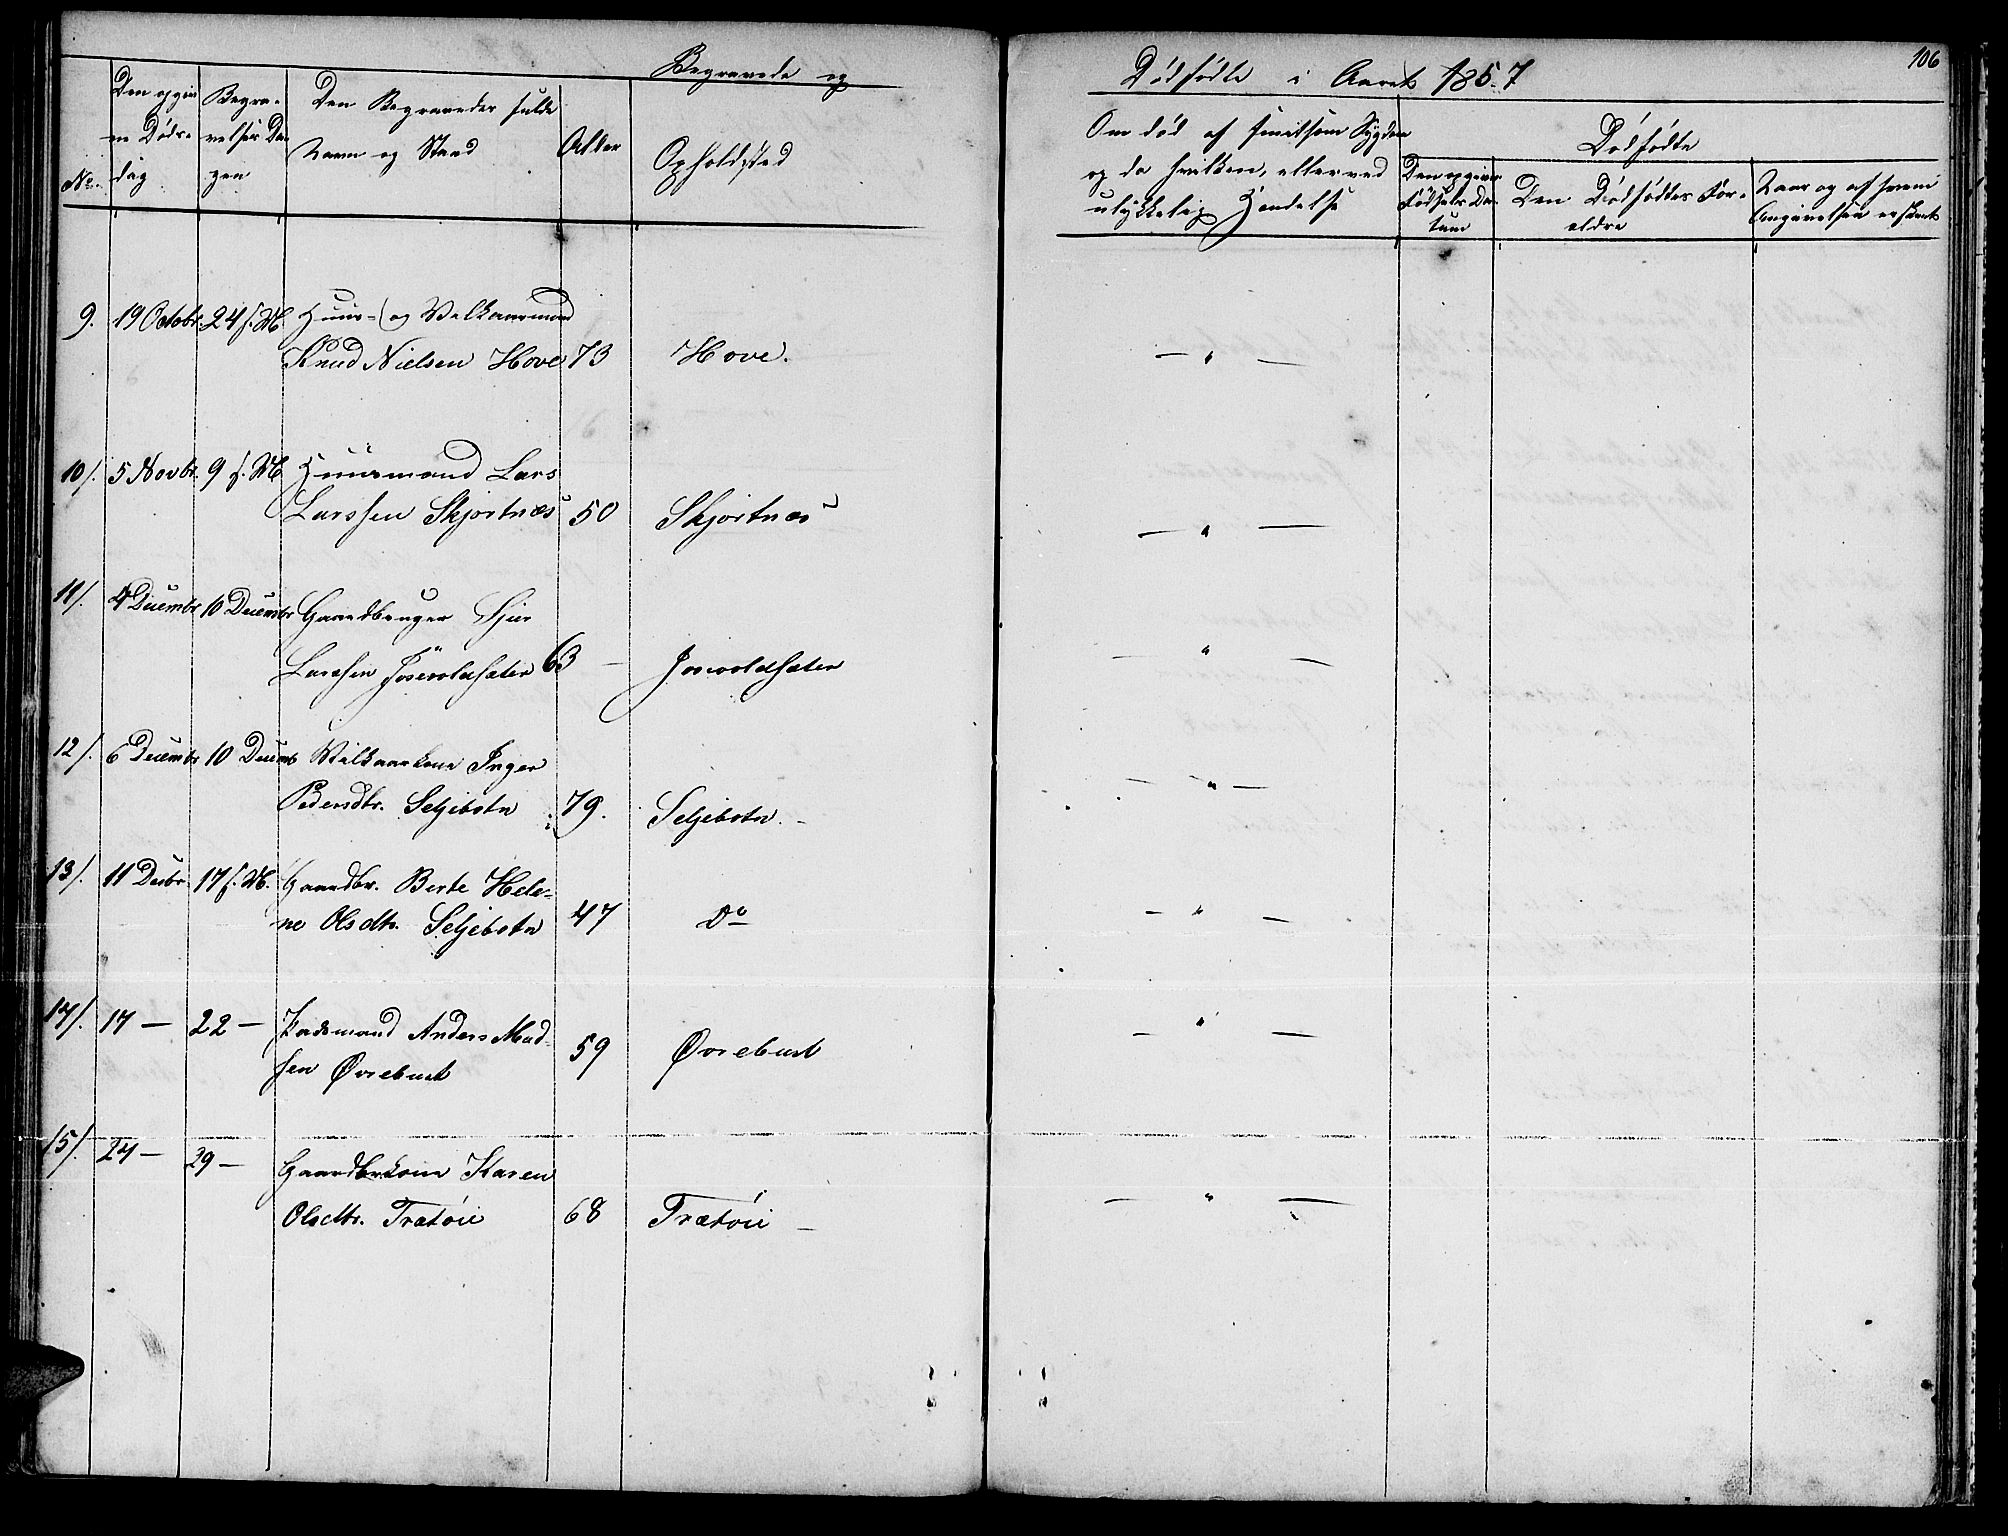 Begravede og
Dødfødte i Aaret 1857
106
No.
Den opgiv
ne Døds-
dag
Begra-
velses Da-
gen
Den Begravedes fulde
Navn og Stand
Alder
Opholdssted
Om død af smitsom Sygdom
og da hvilken, eller ved
ulykkelig Hændelse
Dødfødte
Den opgivne
Fødsels Da-
tum
Den Dødfødtes For-
ældre
Naar og af hvem
Angivelsen er skeet
9. 19 Octobr. 24 s. M. Huus- og Vilkaarsmand
Knud Nielsen Hove 73 Hove. — " —
10/. 5 Novbr. 9 s. M. Huusmand Lars
Larssen Skjortnæs 50 Skjortnæs — " —
11/. 4 Decembr 10 Decembr Gaardbruger Sjur
Larssen Josevoldsæter 63 — Josvoldsæter — " —
12/. 6 Decembr 10 Decemb Vilkaarkone Inger
Pedersdtr. Seljebotn 79. Seljebotn. — " —
13/. 11 Decbr. 17 s. M. Gaardbr. Berte Hele-
ne Olsdtr. Seljebotn 47 Do — " —
14/. 17 — 22 — Pladsmand Anders Mad-
sen Øvrebust 59 Øvrebust — " —
15/. 24 — 29 — Gaardbrkone Karen
Olsdtr. Trætøie 68 Trætøie — — " —